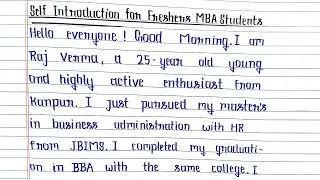 Self Introduction for Freshers MBA Students
Hello everyone! Good Morning. I am
Raj Verma, a 25-year old young
and highly active enthusiast from
Kanpur. I just pursued my master's
in business administration with HR
from JBIMS. I completed my graduati-
on in BBA with the same college. I